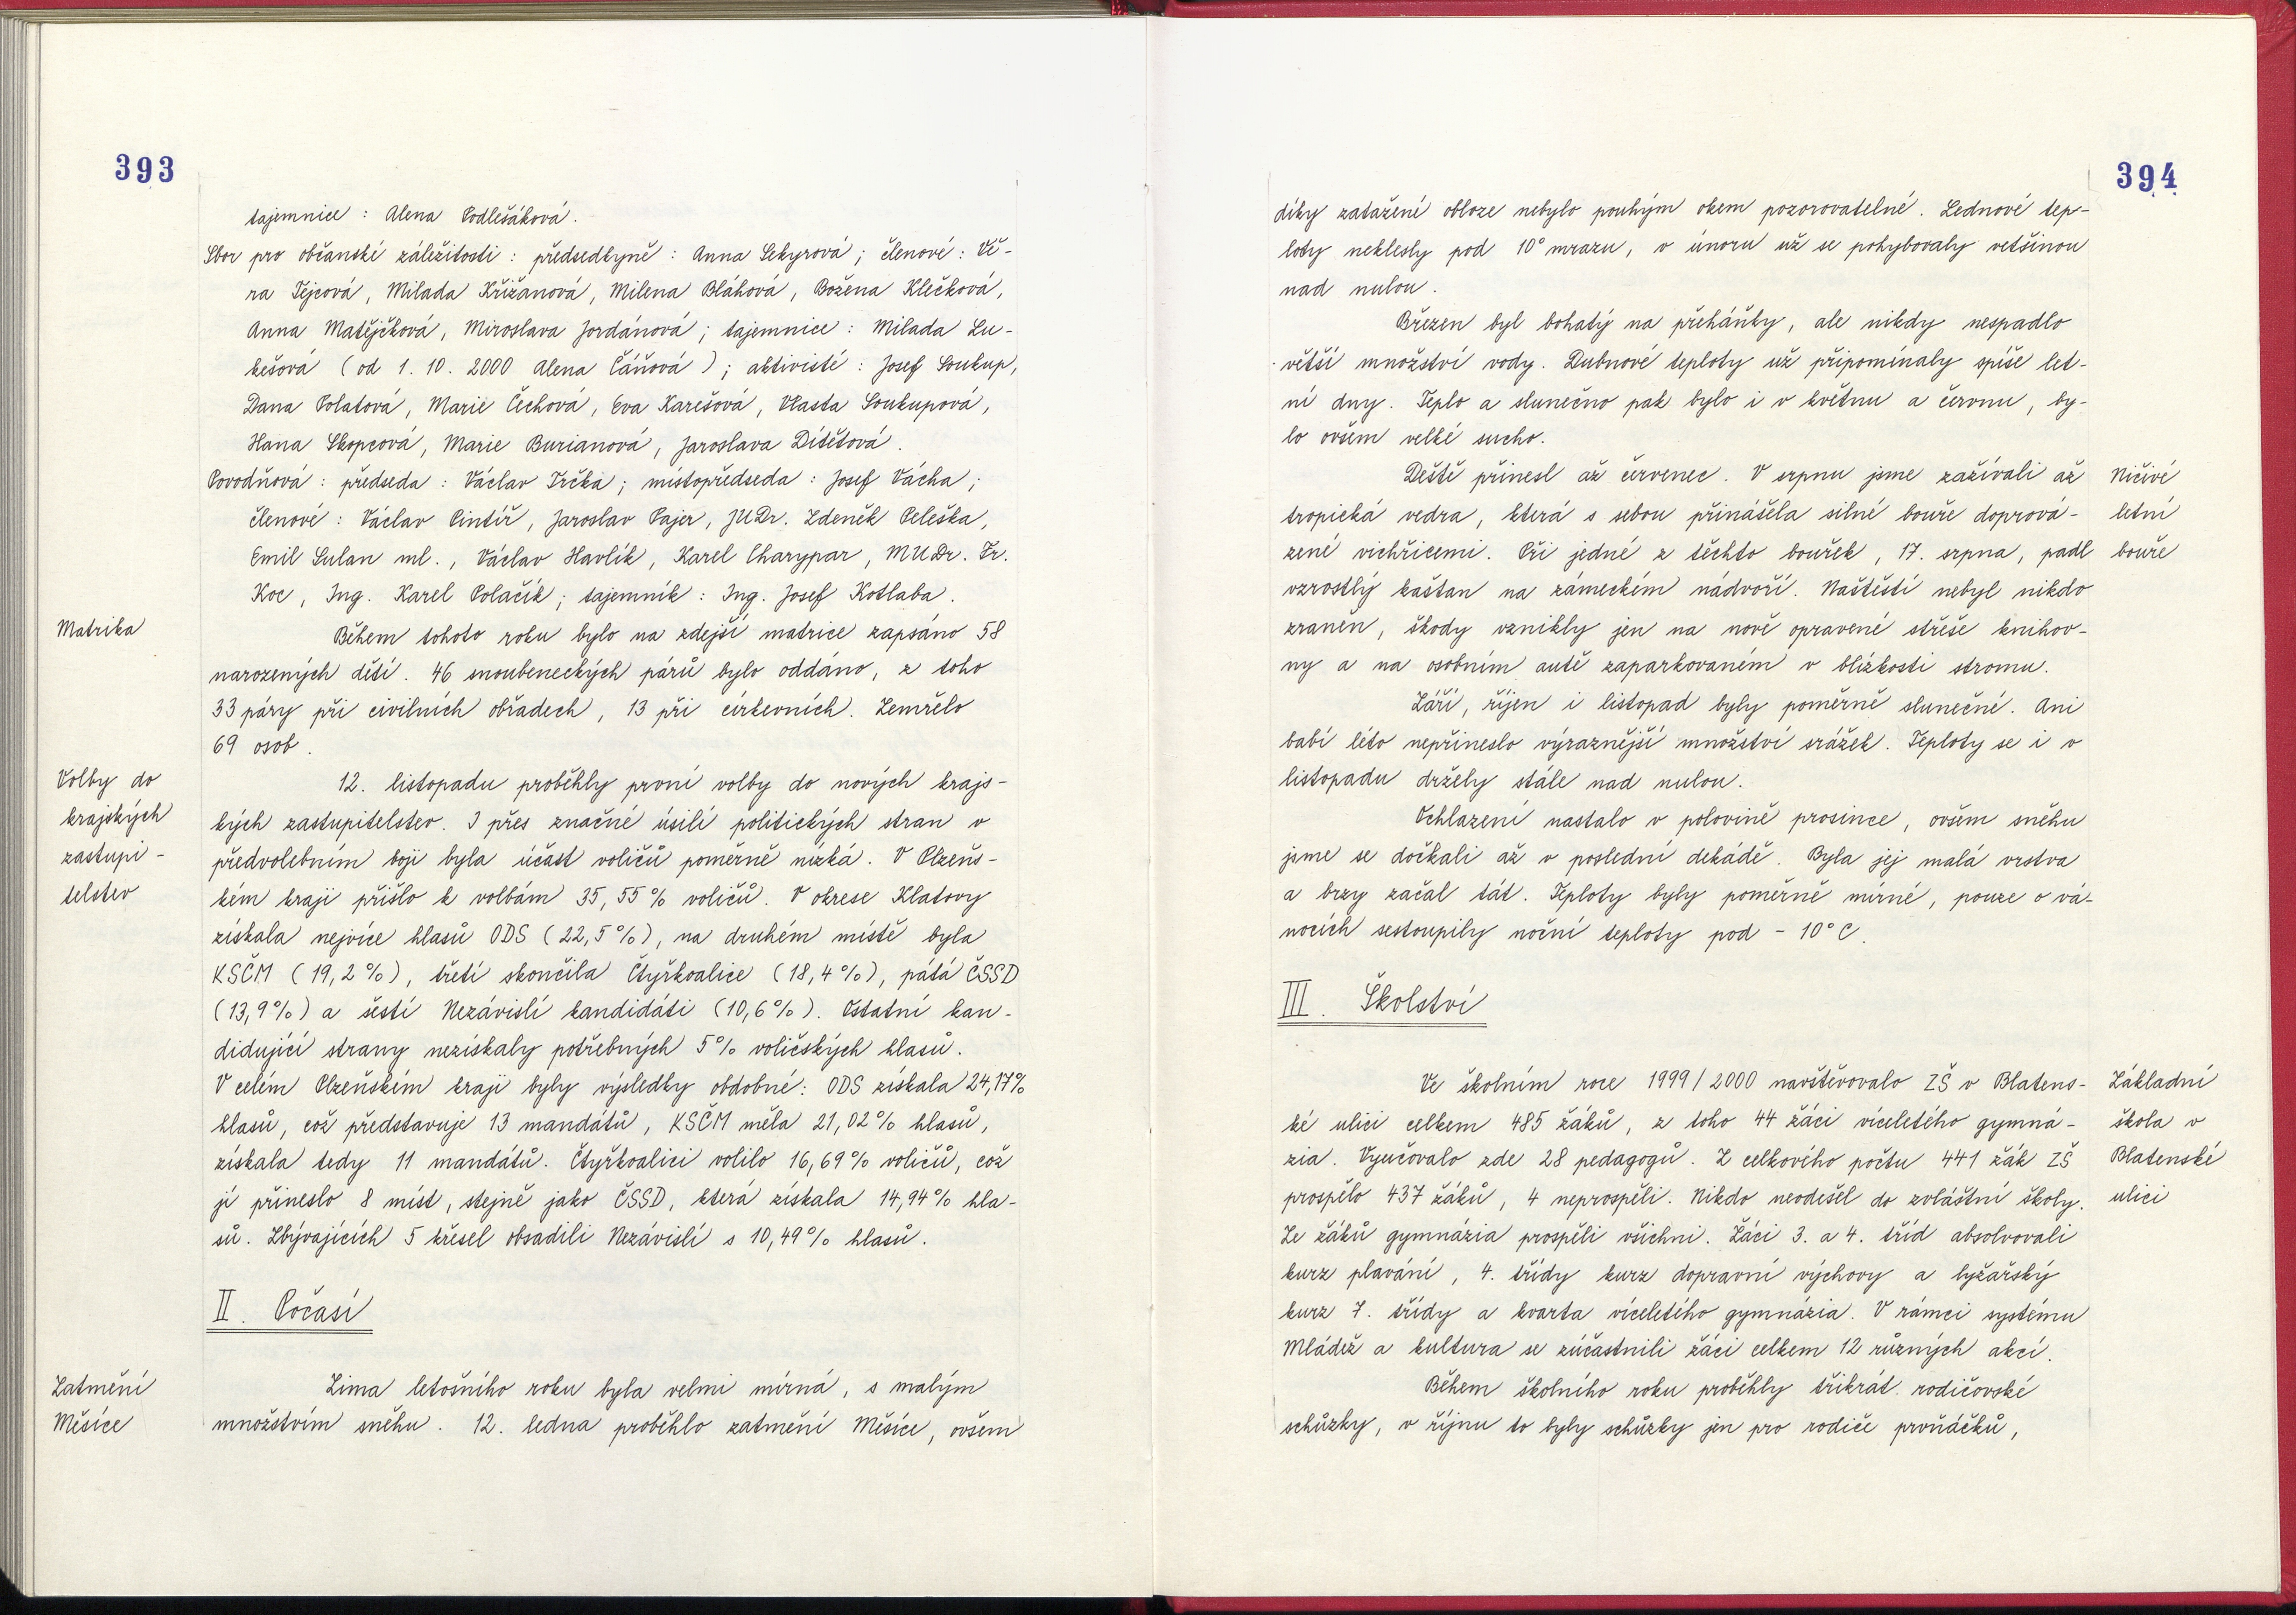 393
tajemnice : Alena Podlešáková.
Sbor pro občanské záležitosti : předsedkyně : Anna Sekyrová ; členové : Vě-
ra Tejcová, Milada Křižanová, Milena Bláhová, Božena Klečková,
Anna Matějčková, Miroslava Jordánová ; tajemnice : Milada Lu-
kešová ( od 1. 10. 2000 Alena Čáňová ) ; aktivisté : Josef Soukup,
Dana Polatová, Marie Čechová, Eva Karešová, Vlasta Soukupová,
Hana Skopcová, Marie Burianová, Jaroslava Dítětová.
Povodňová : předseda : Václav Trčka ; místopředseda : Josef Vácha ;
členové : Václav Pintíř, Jaroslav Pajer, JUDr. Zdeněk Peleška,
Emil Sulan ml., Václav Havlík, Karel Charypar, MUDr. Fr.
Koc, Ing. Karel Polačik ; tajemník : Ing. Josef Kotlaba.
Matrika
Během tohoto roku bylo na zdejší matrice zapsáno 58
narozených dětí. 46 snoubeneckých párů bylo oddáno, z toho
33 páry při civilních obřadech, 13 při církevních. Zemřelo
69 osob.
Volby do
krajských
zastupi-
telstev
12. listopadu proběhly první volby do nových krajs-
kých zastupitelstev. I přes značné úsilí politických stran v
předvolebním boji byla účast voličů poměrně nízká. V Plzeňs-
kém kraji přišlo k volbám 35,55 % voličů. V okrese Klatovy
získala nejvíce hlasů ODS ( 22,5 % ), na druhém místě byla
KSČM ( 19,2 % ), třetí skončila Čtyřkoalice ( 18,4 % ), pátá ČSSD
( 13,9 % ) a šestí Nezávislí kandidáti ( 10,6 % ). Ostatní kan-
didující strany nezískaly potřebných 5 % voličských hlasů.
V celém Plzeňském kraji byly výsledky obdobné : ODS získala 24,17 %
hlasů, což představuje 13 mandátů, KSČM měla 21,02 % hlasů,
získala tedy 11 mandátů. Čtyřkoalici volilo 16,69 % voličů, což
jí přineslo 8 míst, stejně jako ČSSD, která získala 14,94 % hla-
sů. Zbývajících 5 křesel obsadili Nezávislí s 10,49 % hlasů.
II. Počasí
Zatmění
Měsíce
Zima letošního roku byla velmi mírná, s malým
množstvím sněhu. 12. ledna proběhlo zatmění Měsíce, ovšem
394
díky zatažené obloze nebylo pouhým okem pozorovatelné. Lednové tep-
loty neklesly pod 10° mrazu, v únoru už se pohybovaly většinou
nad nulou.
Březen byl bohatý na přeháňky, ale nikdy nespadlo
větší množství vody. Dubnové teploty už připomínaly spíše let-
ní dny. Teplo a slunečno pak bylo i v květnu a červnu, by-
lo ovšem velké sucho.
Deště přinesl až červenec. V srpnu jsme zažívali až
tropická vedra, která s sebou přinášela silné bouře doprová-
zené vichřicemi. Při jedné z těchto bouřek, 17. srpna, padl
vzrostlý kaštan na zámeckém nádvoří. Naštěstí nebyl nikdo
zraněn, škody vznikly jen na nově opravené střeše knihov-
ny a na osobním autě zaparkovaném v blízkosti stromu.
Ničivé
letní
bouře
Září, říjen i listopad byly poměrně slunečné. Ani
babí léto nepřineslo výraznější množství srážek. Teploty se i v
listopadu držely stále nad nulou.
Ochlazení nastalo v polovině prosince, ovšem sněhu
jsme se dočkali až v poslední dekádě. Byla jej malá vrstva
a brzy začal tát. Teploty byly poměrně mírné, pouze o vá-
nocích sestoupily noční teploty pod - 10° C.
III. Školství
Ve školním roce 1999 / 2000 navštěvovalo ZŠ v Blatens-
ké ulici celkem 485 žáků, z toho 44 žáci víceletého gymná-
zia. Vyučovalo zde 28 pedagogů. Z celkového počtu 441 žák ZŠ
prospělo 437 žáků, 4 neprospěli. Nikdo neodešel do zvláštní školy.
Ze žáků gymnázia prospěli všichni. Žáci 3. a 4. tříd absolvovali
kurz plavání, 4. třídy kurz dopravní výchovy a lyžařský
kurz 7. třídy a kvarta víceletého gymnázia. V rámci systému
Mládež a kultura se zúčastnili žáci celkem 12 různých akcí.
Základní
škola v
Blatenské
ulici
Během školního roku proběhly třikrát rodičovské
schůzky, v říjnu to byly schůzky jen pro rodiče prvňáčků,